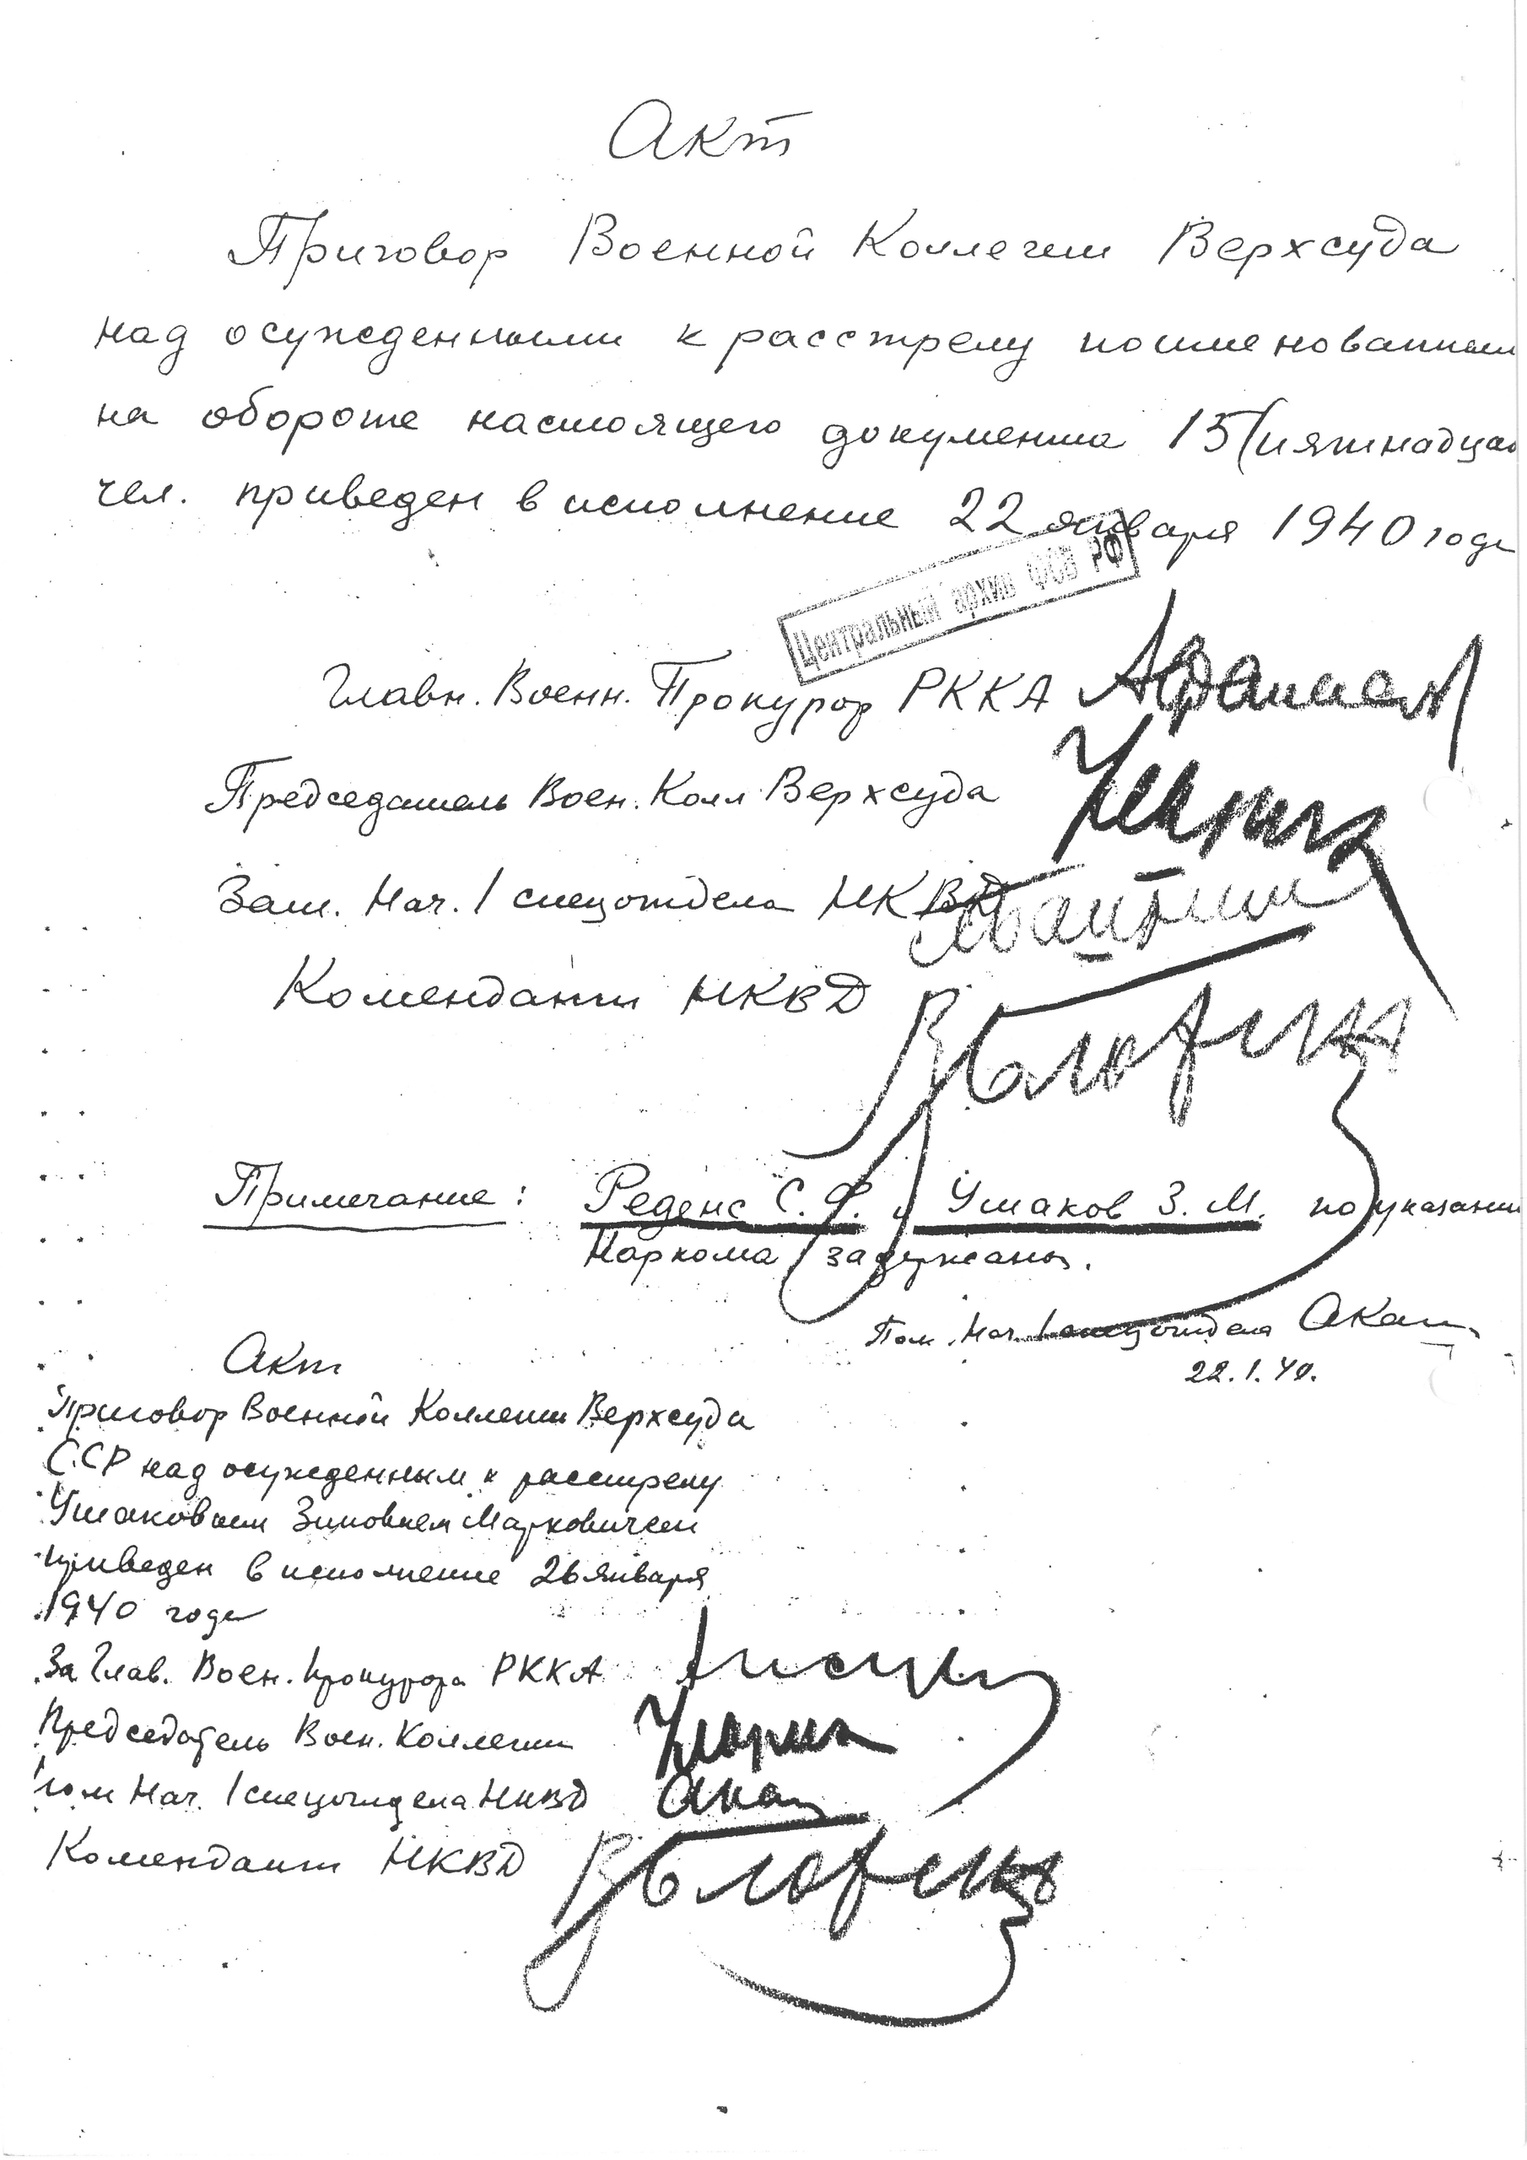 Акт
Приговор Военной Коллегии Верхсуда
над осужденными к расстрелу поименованными
на обороте настоящего документа 15 (пятнадцать
чел. приведен в исполнение 22 января 1940 года
Центральный архив ФСБ РФ
Главн. Военн. Прокурор РККА
Председатель Воен. Колл Верхсуда
Зам. Нач. 1 спецотдела НКВД
Комендант НКВД
Примечание: Реденс С. Ф. и Ушаков З. М. по указани
Наркома задержаны.
Пом. Нач. 1 спецотдела
22.1.40.
Акт
Приговор Военной Коллегии Верхсуда
ССР над осужденным к расстрелу
Ушаковым Зиновием Марковичем
приведен в исполнение 26 января
1940 года
За Глав. Воен. Прокурора РККА
Председатель Воен. Коллегии
Пом Нач. 1 спецотдела НКВД
Комендант НКВД